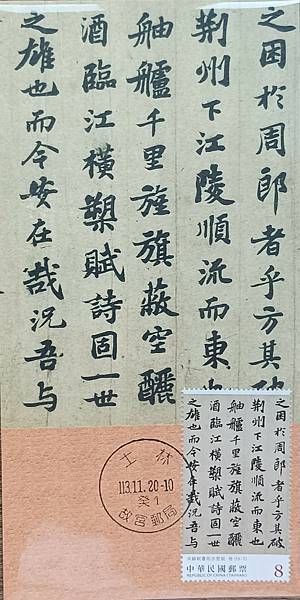 之困於周郎者乎方其破
荊州下江陵順流而東也
舳艫千里旌旗蔽空釃
酒臨江橫槊賦詩固一世
之雄也而今安在哉況吾與
士林
113.11.20-10
癸1
故宮郵局
之困於周郎者乎方其破
荊州下江陵順流而東也
舳艫千里旌旗蔽空釃
酒臨江橫槊賦詩固一世
之雄也而今安在哉況吾與
中華民國郵票
REPUBLIC OF CHINA (TAIWAN)
8